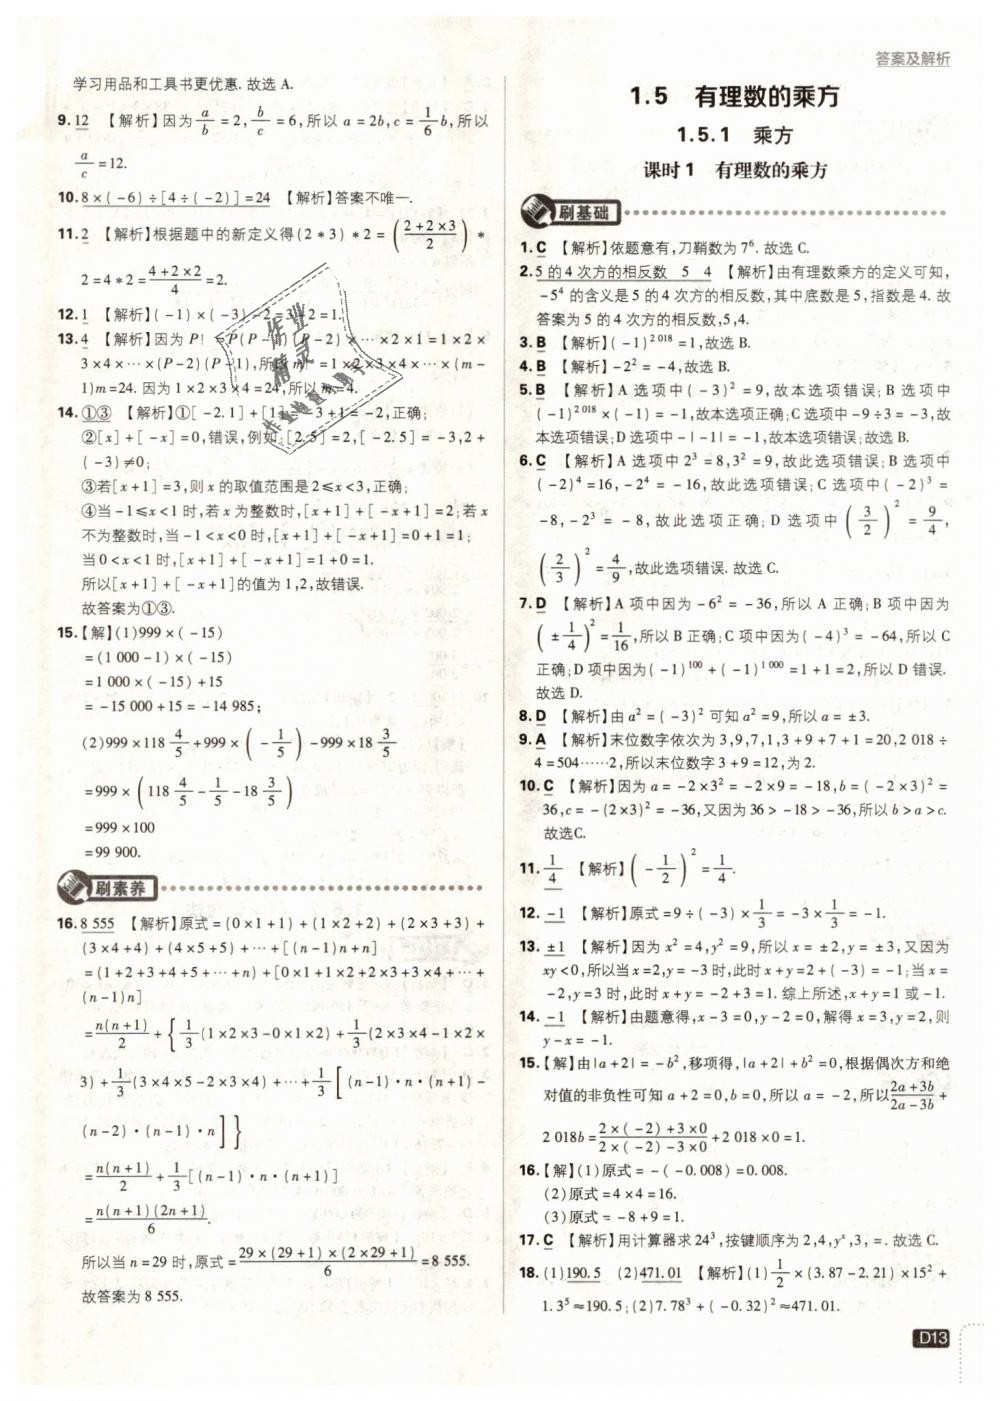 答案及解析
学习用品和工具书更优惠. 故选 A.
9. 12 【解析】因为 a/b = 2, b/c = 6, 所以 a = 2b, c = 1/6 b, 所以
a/c = 12.
10. 8×(-6)÷[4÷(-2)]=24 【解析】答案不唯一.
11. 2 【解析】根据题中的新定义得(2*3)*2 = ((2+2×3)/2) *
2 = 4*2 = (4+2×2)/4 = 2.
12. 1 【解析】(-1)×(-3)-2=3-2=1.
13. 4 【解析】因为 P! = P(P-1)(P-2)×…×2×1=1×2×
3×4×…×(P-2)(P-1),所以 m! =1×2×3×4×…×(m-
1)m=24. 因为 1×2×3×4=24,所以 m=4.
14. ①③ 【解析】①[-2.1]+[1]=-3+1=-2,正确;
②[x]+[-x]=0,错误,例如,[2.5]=2,[-2.5]=-3,2+
(-3)≠0;
③若[x+1]=3,则 x 的取值范围是 2≤x<3,正确;
④当-1≤x<1 时,若 x 为整数时,[x+1]+[-x+1]=2;若 x
不为整数时,当-1<x<0 时,[x+1]+[-x+1]=0+1=1;
当 0<x<1 时,[x+1]+[-x+1]=1+0=1.
所以[x+1]+[-x+1]的值为 1,2,故错误.
故答案为①③.
15. 【解】(1)999×(-15)
=(1 000-1)×(-15)
=1 000×(-15)+15
=-15 000+15=-14 985;
(2)999×118 4/5+999×(-1/5)-999×18 3/5
=999×(118 4/5-1/5-18 3/5)
=999×100
=99 900.
刷素养
16. 8 555 【解析】原式=(0×1+1)+(1×2+2)+(2×3+3)+
(3×4+4)+(4×5+5)+…+[(n-1)n+n]
=(1+2+3+4+5+…+n)+[0×1+1×2+2×3+3×4+…+
(n-1)n]
=n(n+1)/2+{1/3(1×2×3-0×1×2)+1/3(2×3×4-1×2×
3)+1/3(3×4×5-2×3×4)+…+1/3[(n-1)·n·(n+1)-
(n-2)·(n-1)·n]}
=n(n+1)/2+1/3[(n-1)·n·(n+1)]
=n(n+1)(2n+1)/6.
所以当 n=29 时,原式=29×(29+1)×(2×29+1)/6=8 555.
故答案为 8 555.
1.5 有理数的乘方
1.5.1 乘方
课时1 有理数的乘方
刷基础
1. C 【解析】依题意有,刀鞘数为 7⁶. 故选 C.
2. 5 的 4 次方的相反数 5 4 【解析】由有理数乘方的定义可知,
-5⁴ 的含义是 5 的 4 次方的相反数,其中底数是 5,指数是 4. 故
答案为 5 的 4 次方的相反数,5,4.
3. B 【解析】(-1)²⁰¹⁸=1,故选 B.
4. B 【解析】-2²=-4,故选 B.
5. B 【解析】A 选项中(-3)²=9,故本选项错误;B 选项中
(-1)²⁰¹⁸×(-1)=-1,故本选项正确;C 选项中-9÷3=-3,故
本选项错误;D 选项中-|-1|=-1,故本选项错误. 故选 B.
6. C 【解析】A 选项中 2³=8,3²=9,故此选项错误;B 选项中
(-2)⁴=16,-2⁴=-16,故此选项错误;C 选项中(-2)³=
-8,-2³=-8,故此选项正确;D 选项中(3/2)²=9/4,
(2/3)²=4/9,故此选项错误. 故选 C.
7. D 【解析】A 项中因为-6²=-36,所以 A 正确;B 项中因为
(±1/4)²=1/16,所以 B 正确;C 项中因为(-4)³=-64,所以 C
正确;D 项中因为(-1)¹⁰⁰+(-1)¹⁰⁰⁰=1+1=2,所以 D 错误.
故选 D.
8. D 【解析】由 a²=(-3)² 可知 a²=9,所以 a=±3.
9. A 【解析】末位数字依次为 3,9,7,1,3+9+7+1=20,2 018÷
4=504……2,所以末位数字 3+9=12,为 2.
10. C 【解析】因为 a=-2×3²=-2×9=-18,b=(-2×3)²=
36,c=-(2×3)²=-36,又因为 36>-18>-36,所以 b>a>c.
故选C.
11. 1/4 【解析】(-1/2)²=1/4.
12. -1 【解析】原式=9÷(-3)×1/3=-3×1/3=-1.
13. ±1 【解析】因为 x²=4,y²=9,所以 x=±2,y=±3,又因为
xy<0,所以当 x=2,y=-3 时,此时 x+y=2+(-3)=-1;当 x=
-2,y=3 时,此时 x+y=-2+3=1. 综上所述,x+y=1 或-1.
14. -1 【解析】由题意得,x-3=0,y-2=0,解得 x=3,y=2,则
y-x=-1.
15. 【解】由|a+2|=-b²,移项得,|a+2|+b²=0,根据偶次方和绝
对值的非负性可知 a+2=0,b=0,所以 a=-2,所以(2a+3b)/(2a-3b)+
2 018b=(2×(-2)+3×0)/(2×(-2)-3×0)+2 018×0=1.
16. 【解】(1)原式=-(-0.008)=0.008.
(2)原式=4×4=16.
(3)原式=-8+9=1.
17. C 【解析】用计算器求 24³,按键顺序为 2,4,yˣ,3,=. 故选 C.
18. (1)190.5 (2)471.01 【解析】(1)1/2×(3.87-2.21)×15²+
1.3⁵≈190.5;(2)7.78³+(-0.32)²≈471.01.
D13
作业
精灵